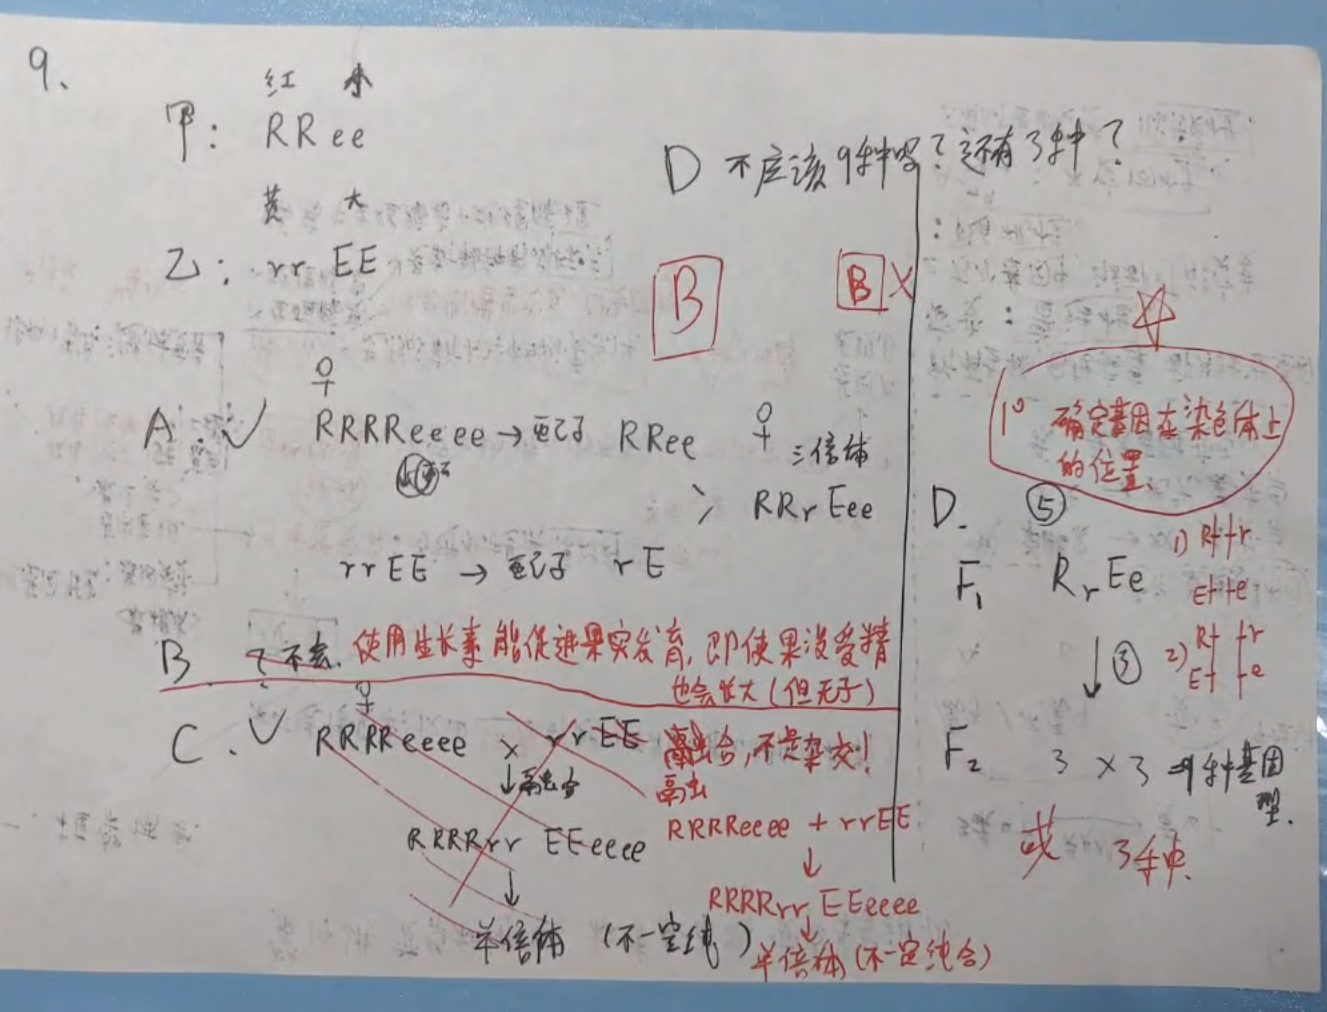 9、
红 小
甲: RRee
黄 大
乙: rr EE
D 不应该9种吗?还有3种?
B
B X
♀
A. √ RRRReeee → 配子 RRee ♀
三倍体
> RRrEee
rrEE → 配子 rE
B. 使用生长素能促进果实发育,即使果没受精
也会长大(但无子)
♀
C. √ RRRReeee × rrEE
↓融合
RRRRrr EEeeee
↓
单倍体 (不一定纯)
融合,不是杂交!
RRRReeee + rrEE
↓
RRRRrr EEeeee
↓
单倍体(不一定纯合)
1° 确定基因在染色体上
的位置、
D. ⑤
F₁ RrEe
1) R r
E e
2) R r
E e
↓ ③
F₂ 3 × 3 =9种基因
型.
或 3种.